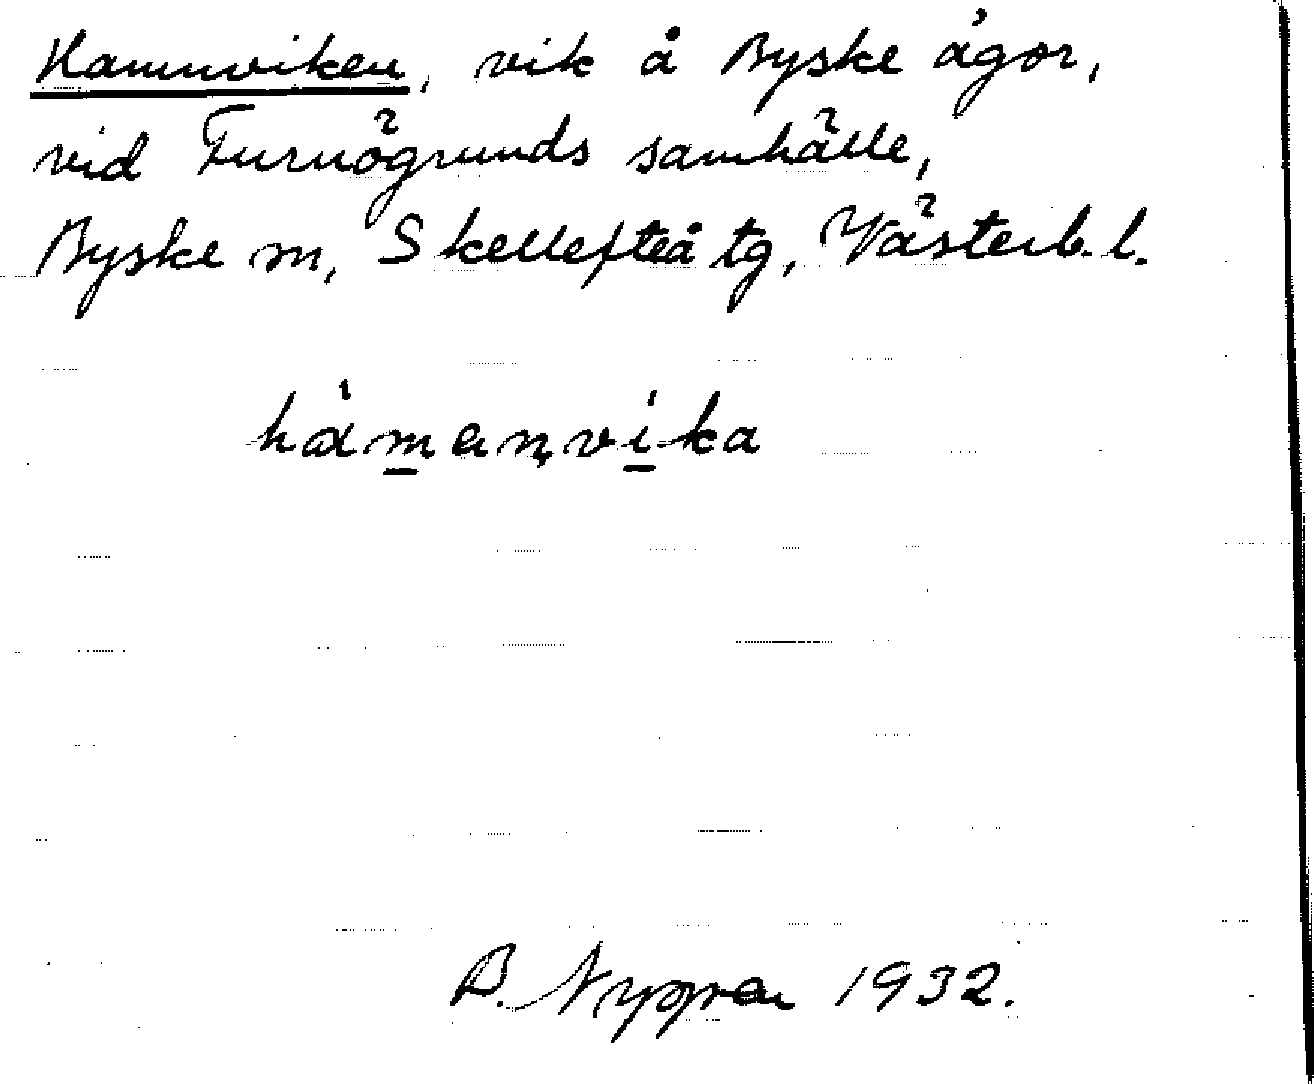 Hamnviken, vik å Byske ägor,
vid Furuögrunds samhälle,
Byske sn, Skellefteå tg, Västerb. l.
hamanvika
B. Nygren 1932.